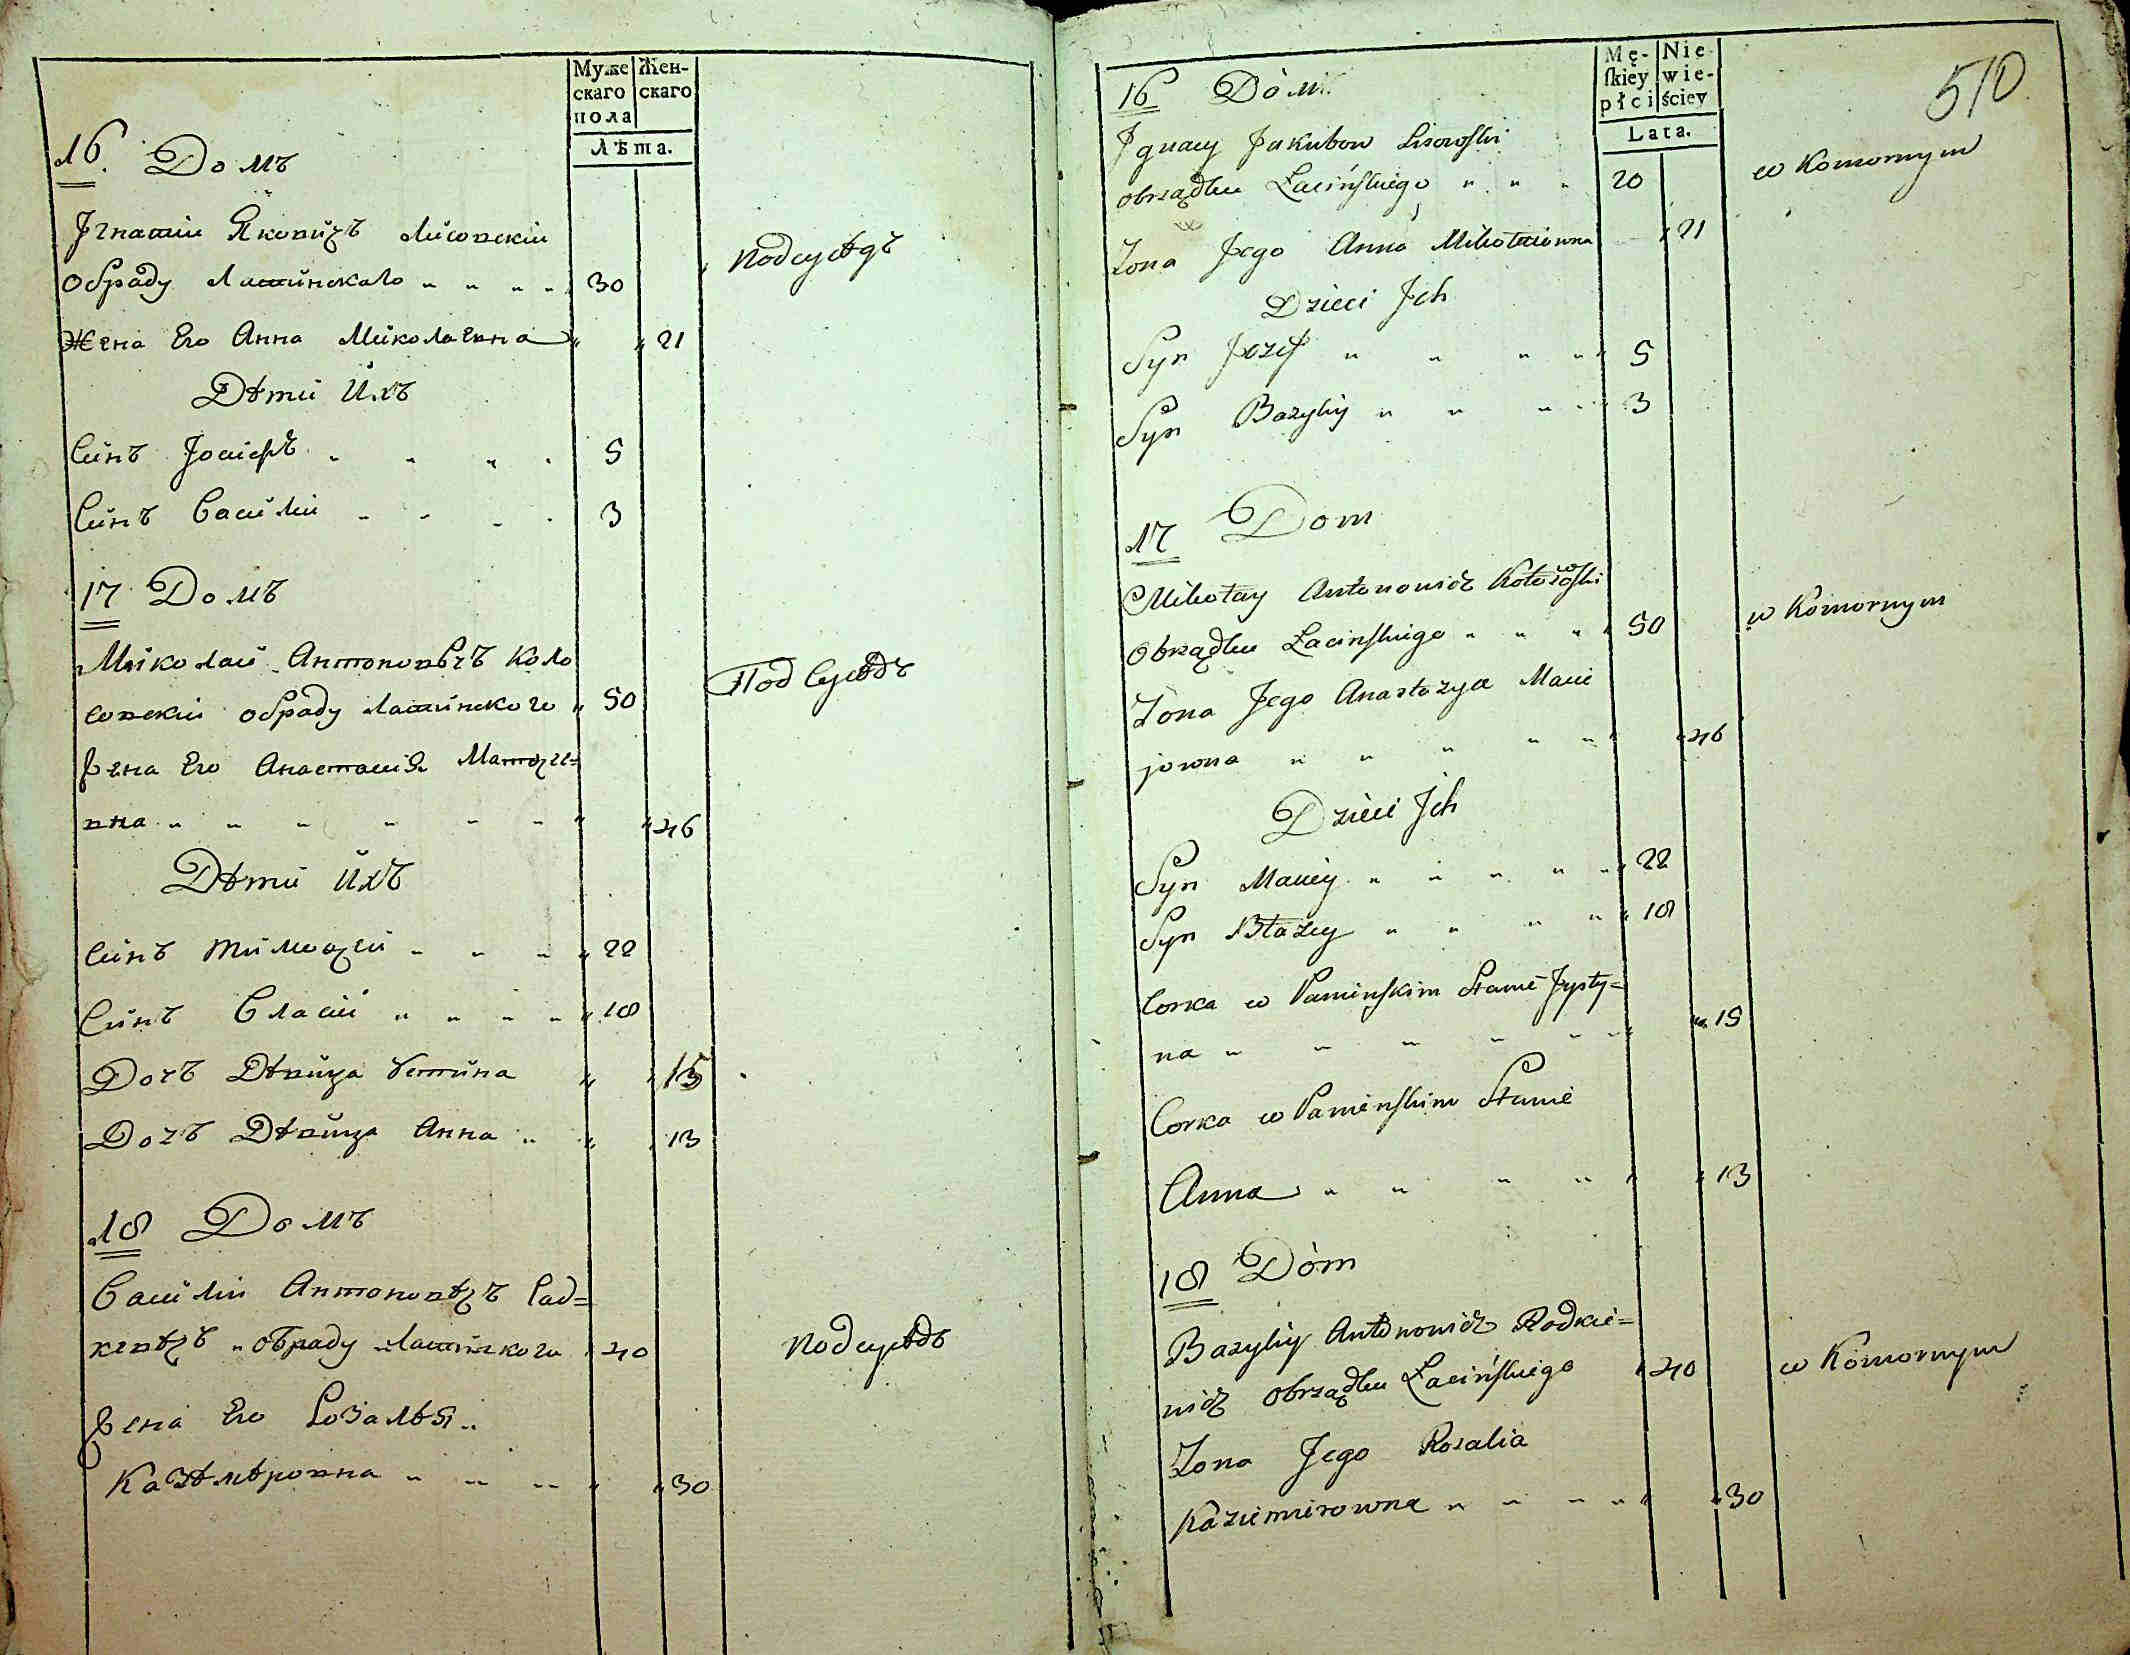 Муже Жен-
скаго скаго
пола
Лѣта.
16. Домъ
Jгнатiи Яковичъ Лисовскiи
обраду Латинскаго " " " " 30
подсусѣдъ
Жена Его Анна Миколаевна " " 21
Дѣти Ихъ
Синъ Jосифъ " " " " 5
Синъ Василiи " " " " 3
17 Домъ
Миколаи Антоновѣчъ Коло
совскiи обраду Латинского " 50
Подсусѣдъ
Жена Его Анастасiя Матѵее=
вна " " " " " " " " 46
Дѣти Ихъ
Синъ Тимоѵеи " " " " 22
Синъ Власiи " " " " " 18
Дочъ Дѣвица Устина " " 15
Дочъ Дѣвица Анна " " " 13
18 Домъ
Василiи Антоновѣчъ Рад=
кевѣчъ " обраду Латинского 40
подсусѣдъ
Жена Его Розалѣя "
Казѣмѣровна " " " " " 30
510
Mę- Nie
skiey wie-
płci ściey
Lata.
16 Dòm
Jgnacy Jakubow Lisowski
obrządku Łacińskiego " " " 20
w Komornym
Zona Jego Anna Mikołaiowna " 21
Dzieci Jch
Syn Jozef " " " " " 5
Syn Bazyliy " " " " 3
17 Dom
Mikołay Antonowicz Kołosowski
Obrządku Łacinskiego " " " " 50
w Komornym
Zona Jego Anastazya Macie
jowna " " " " " " " 46
Dzieci Jch
Syn Maciey " " " " " " 22
Syn Błażey " " " " " 18
Corka w Panienskim Stanie Justy=
na " " " " " " " " 15
Corka w Panienskim Stanie
Anna " " " " " " 13
18 Dòm
Bazyliy Antonowicz Rodkie=
wicz Obrządku Łacińskiego " 40
w Komornym
Zona Jego Rozalia
Kazimierowna " " " " " " 30